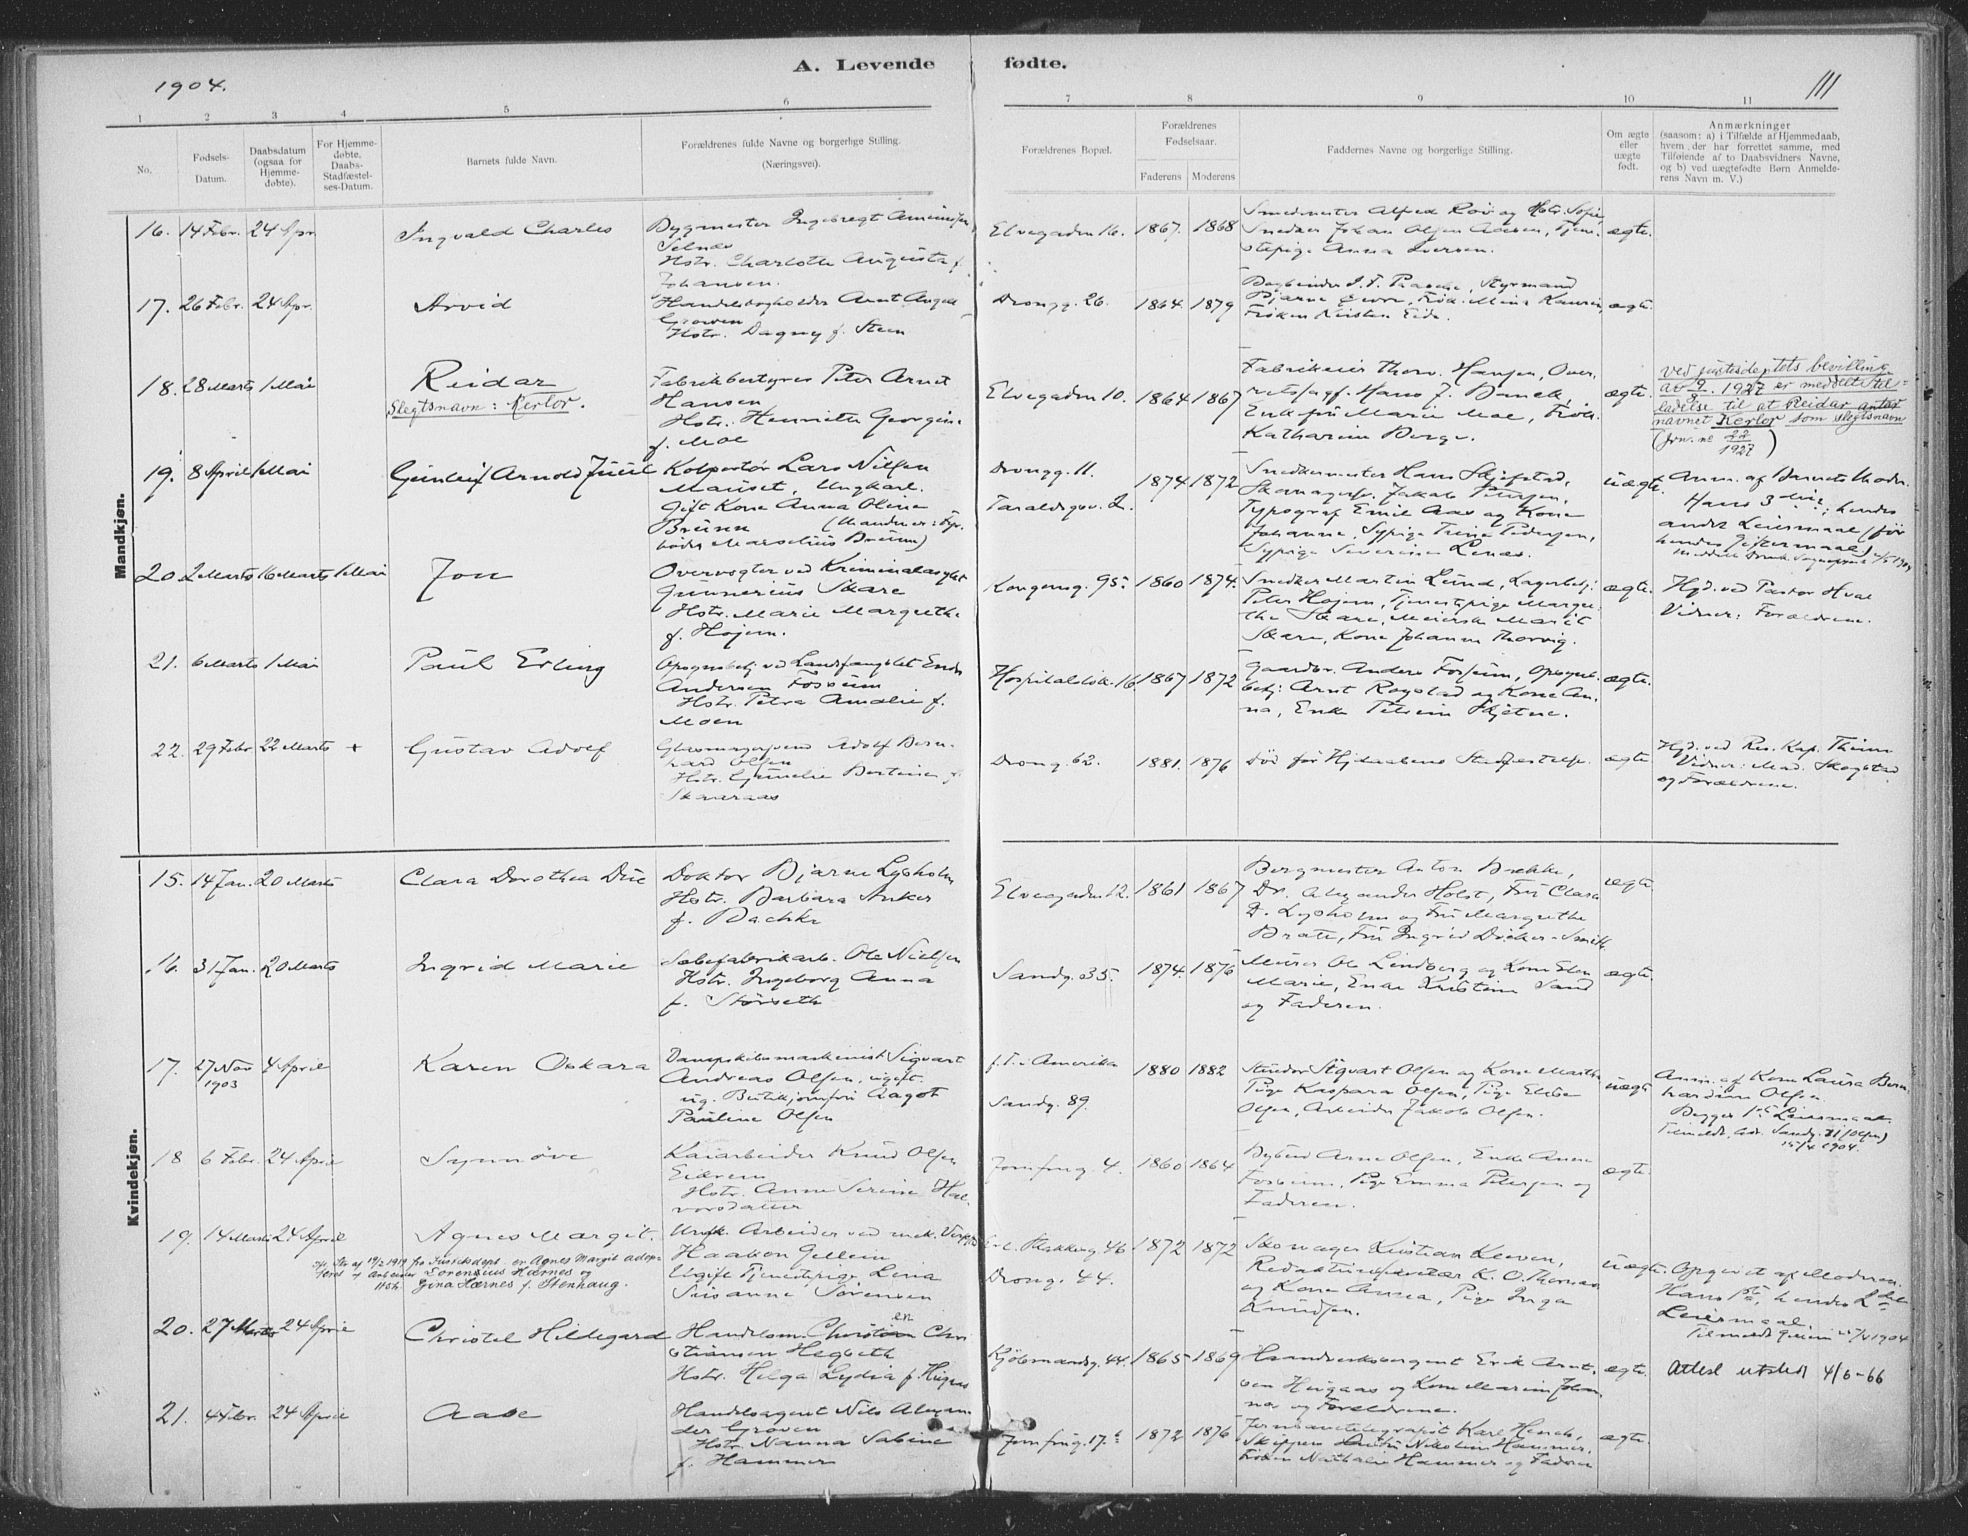 1904.
A. Levende fødte.
111
1 2 3 4 5 6 7 8 9 10 11
No.
Fødsels-
Datum.
Daabsdatum
(ogsaa for
Hjemme-
døbte).
For Hjemme-
døbte,
Daabs-
Stadfæstel-
ses-Datum.
Barnets fulde Navn.
Forældrenes fulde Navne og borgerlige Stilling.
(Næringsvei).
Forældrenes Bopæl.
Forældrenes
Fødselsaar.
Faderens
Moderens
Faddernes Navne og borgerlige Stilling.
Om ægte
eller
uægte
født.
Anmærkninger
(saasom: a) i Tilfælde af Hjemmedaab,
hvem der har forrettet samme, med
Tilføiende af to Daabsvidners Navne,
og b) ved uægtefødte Børn Anmelde-
rens Navn m. V.)
Mandkjøn.
16. 14 Febr. 24 Apr. Ingvald Charles
Bygmester Ingebregt
Selnæs
Hstr. Charlotte Augusta f.
Johansen.
Elvegaden 16. 1867. 1868
Smedmester Alfred Rov og Hstr. Sofie,
Snedker Johan Olsen Aasen, Tjene-
stepige Anna Iversen.
ægte.
17. 26 Febr. 24 Apr. Arvid
Handelsbogholder Arnt Angell
Grøven
Hstr. Dagny f. Steen
Drongg. 26. 1864. 1879
Bogbinder J. F. Paasche, Styrmand
Bjarne Frøk. Mina
Frøken Kirsten Eide.
ægte.
18. 28 Marts 1 Mai Reidar
Slegtsnavn: Kerlor.
Fabrikbestyrer Peter Arnt
Hansen
Hstr. Henriette Georgine
f. Moe
Elvegaden 10. 1864 1867
Fabrikeier Thorv. Hansen, Over-
retssagf. Hans J.
Enkefru Marie Moe, Frøk.
Katharina Berge.
ægte.
Ved justisdeptets bevilling
av 9/8. 1927 er meddelt til-
ladelse til at Reidar antar
navnet Kerlor som slegtsnavn
(jrn. nr 22/1927)
19. 8 April 1 Mai Gunleif Arnold Juul
Kolportør Lars Nilsen
Mauset, Ungkarl.
Gift Kone Anna Oline
Bruun (Manden er: Fyr-
bøder Marselius Bruun)
Drongg. 11.
Taraldsgv. 2.
1874 1872
Snedkermester Hans Skjefstad,
Skomagersv. Jakob Petersen,
Typograf Emil Aas og Kone
Johanne, Sypige Trine Pedersen,
Sypige Severine Lenæs.
uægt.
Anm. af Barnets Moder.
Hans 3die, hendes
andet Leiermaal (før
hendes Giftermaal)
20. 2 Marts 16 Marts 1 Mai Jon
Overvogter ved Kriminalasylet
Gunnerius Skare
Hstr. Marie Margrethe
f. Højem.
Kongensg. 95. 1860 1874.
Snedker Martin Lund, Lagerbetj.
Peter Højem, Tjenestepige Margre-
the Skare, Meierske Marit
Skare, Kone Johanna Thorvig.
ægte.
Hjd. ved Pastor Hval
Vidner: Forældrene.
21. 6 Marts 1 Mai Paul Erling
Opsynsbetj. ved Landsfængslet
Andersen Forseum
Hstr. Petra Amalie f.
Moen
Hospitalsløk. 16 1867 1872
Gaardbr. Anders Forseum, Opsyns-
betj. Arnt Rogstad og Kone An-
na, Enke Petrine Skjetne.
ægte.
22. 29 Febr 22 Marts + Gustav Adolf
Glasmagersvend Adolf Bern-
hard Olsen
Hstr. Gunelie Bertine f.
Skaaraas
Drong. 62. 1881. 1876
Død før Hjdaabens Stadfæstelse.
ægte
Hjd. ved Res. Kap. Thinn
Vidner: Mad. Skogstad
og Forældrene.
Kvindekjøn.
15. 14 Jan. 20 Marts Clara Dorothea Due
Doktor Bjarne Lysholm
Hstr. Barbara Anker
f. Bachke
Elvegaden 12. 1861 1867
Bergmester Anton Brekke,
Dr. Alexander Holst, Fru Clara
D. Lysholm og Fru Margrethe
Brate, Fru Ingrid Dicker-Smith.
ægte
16. 31 Jan. 20 Marts Ingrid Marie
Sæbefabrikarb. Ole Nielsen
Hstr. Ingeborg Anna
f. Størseth
Sandg. 35. 1874. 1876
Murer Ole Lindberg og Kone Elen
Marie, Enke Kristine Sand
og Faderen.
ægte
17. 27 Nov 1903 4 April Karen Oskara
Dampskibsmaskinist Sigvart
Andreas Olsen, ugift.
ug. Butikjomfru Aagot
Pauline Olsen
f. T. i Amerika
Sandg. 89.
1880 1882
Stuador Sigvart Olsen og Kone Marthe
Pige Kaspara Olsen, Pige Elise
Olsen, Arbeider Jakob Olsen.
uægt.
Anm. af Kone Laura Bern-
hardine Olsen.
Begges 1ste Leiermaal.
15/4 1904.
18 6 Febr. 24 April Synnøve
Kaiarbeider Knud Olsen
Eidrem
Hstr. Anne Serine Hal-
vorsdatter
Jomfrug. 4. 1860 1864
Bybud Arne Olsen, Enke Anne
Forseum, Pige Emma Petersen og
Faderen.
ægte
19. 14 Marts 24 April Agnes Margit.
Ungk. Arbeider ved mek. Verksted
Haakon Gellein
Ugift Tjenestepige Lena
Susanne Sørensen
19/2 1919 fra Justisdept. er Agnes Margit adop-
teret af Arbeider Lorensius Hærnes og
Hstr. Gina Hærnes f. Stenhaug.
46
Drong. 44.
1872 1872
Skomager Kristian Leeven,
Redaktionssekretær K. O. Thornæs
og Kone Anna, Pige Inga
Knudsen.
uægte.
Opgivet af Moderen.
Hans 1ste, hendes 2det
Leiermaal.
20. 27 Marts 24 April Christel Hildegard
Handelsm. Christian Chri-
stiansen Hegseth
Hstr. Helga Lydia f.
Kjøbmandsg. 44. 1865 1869
Haandverksborgent Erik Arnt-
sen Huigaas og Kone Marie Johan-
na og Forældrene.
ægte.
Attest utstedt 4/6-66
21. 4 Febr. 24 April Aase
Handelsagent Nils Alexan-
der Grøven
Hstr. Nanna Sabine
f. Hammer
Jomfrug. 17. 1872 1876
Jernbanetelegrafist Karl Hench,
Skipper Nikolai Hammer,
Frøken Nathalie Hammer og Faderen
ægte.